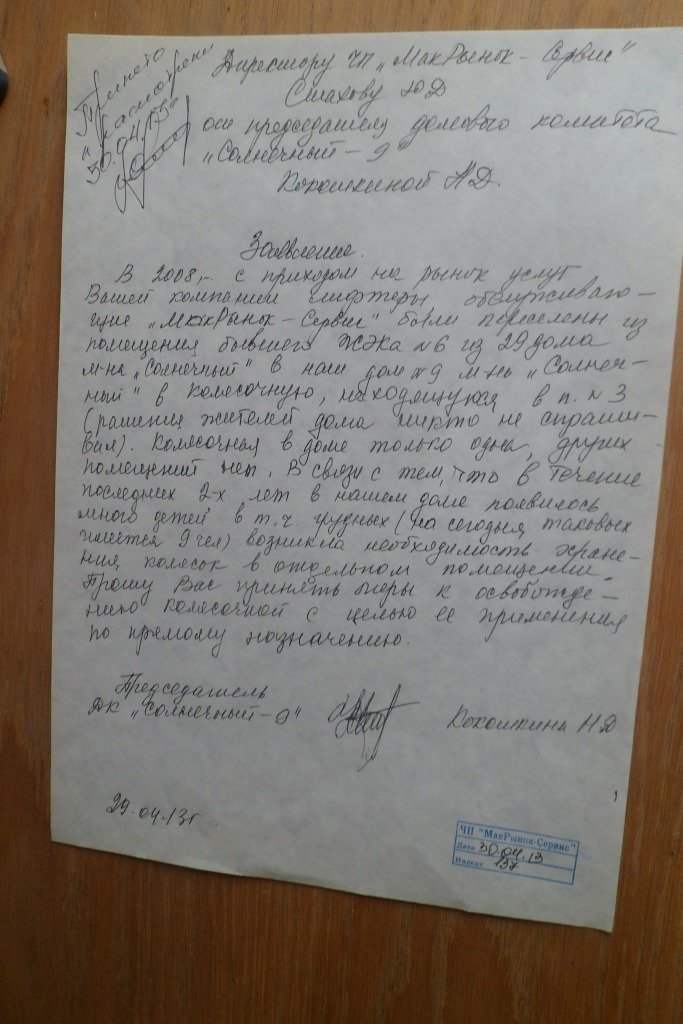 Принято
к рассмотрению
30.04.13г.
Директору ЧП „МакРынок-Сервис"
Стахову Ю Д
от председателя домового комитета
„Солнечный-9"
Кокошкиной Н Д.
Заявление.
В 2008,- с приходом на рынок услуг
Вашей компании лифтеры обслуживаю-
щие „МакРынок-Сервис" были переселены из
помещения бывшего ЖЭКа №6 из 29 дома
м-на „Солнечный" в наш дом №9 м-на „Солнеч-
ный" в колясочную, находящуюся в п. №3
(рашения жителей дома никто не спраши-
вал). Колясочная в доме только одна, других
помещений нет. В связи с тем, что в течение
последних 2-х лет в нашем доме появилось
много детей в т.ч. грудных (на сегодня таковых
имеется 9 чел) возникла необходимость хране-
ния колясок в отдельном помещении.
Прошу Вас принять меры к освобожде-
нию колясочной с целью ее применения
по прямому назначению.
Председатель
ДК „Солнечный-9"
Кокошкина Н Д
29.04.13г
ЧП "МакРынок-Сервис"
Дата 30.04.13
Индекс 137